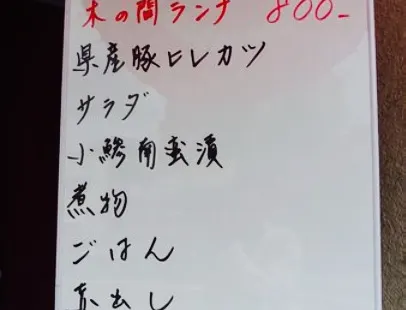 木の間ランチ 800-
県産豚ヒレカツ
サラダ
小鯵南蛮漬
煮物
ごはん
赤出し